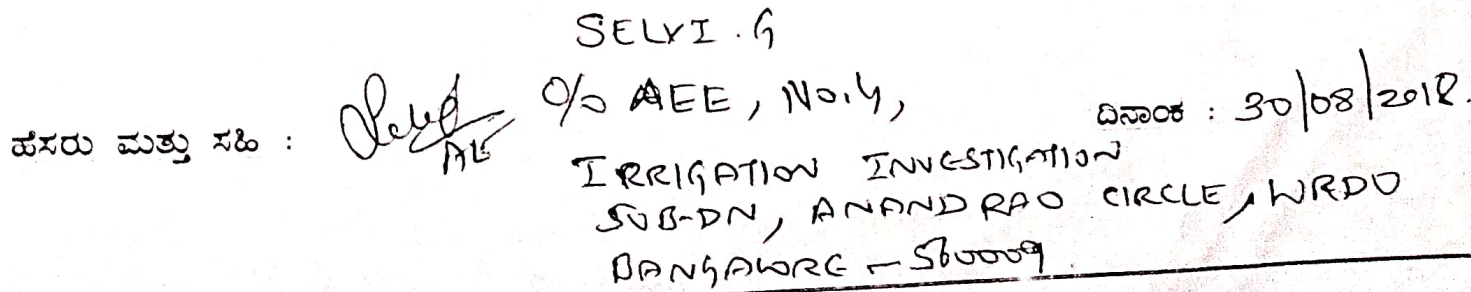 SELVI . G
ಹೆಸರು ಮತ್ತು ಸಹಿ : AE O/o AEE, No.4, ದಿನಾಂಕ : 30/08/2018.
IRRIGATION INVESTIGATION
SUB-DN, ANAND RAO CIRCLE, WRDO
BANGALORE - 560009.